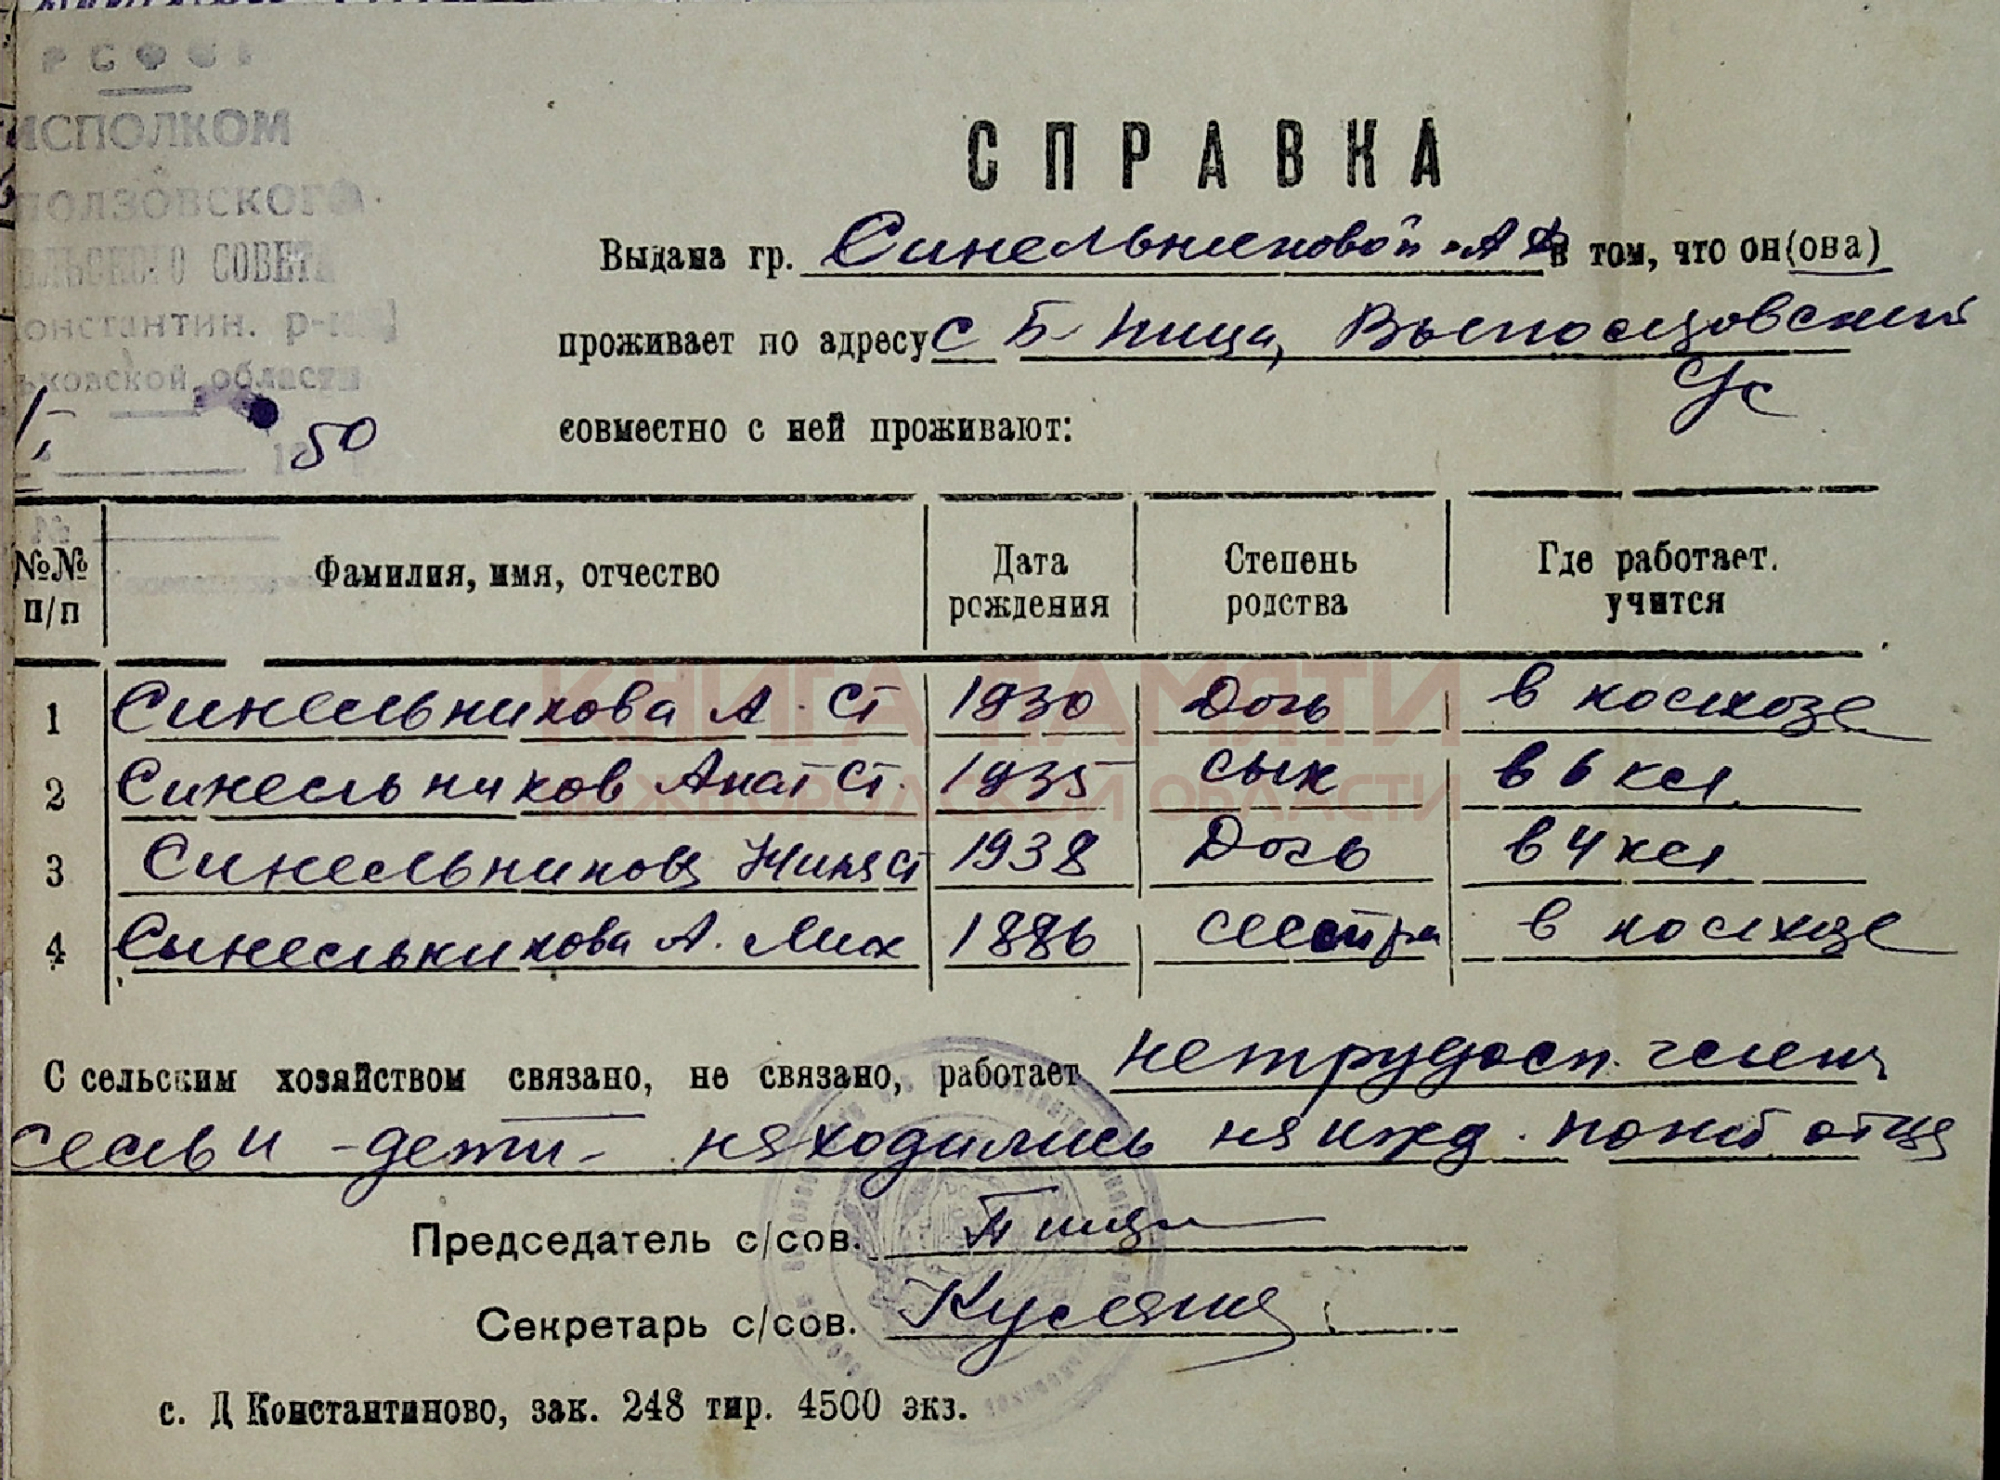 РСФСР
ИСПОЛКОМ
ПОЛЗОВСКОГО
ЕЛЬСКОГО СОВЕТА
Константин. р-на
ьковской области
50
№
СПРАВКА
Выдана гр. Синельниковой А Ф в том, что он(она)
проживает по адресу с Б Пица,
с/с
совместно с ней проживают:
№№ п/п Фамилия, имя, отчество Дата рождения Степень родства Где работает. учится
1 Синельникова А. Ст 1930 Дочь в колхозе
2 Синельников Анат Ст. 1935 сын в 6 кл
3 Синельникова Нина Ст 1938 Дочь в 4 кл
4 Синельникова А. Мих 1886 сестра в колхозе
КНИГА ПАМЯТИ
НИЖЕГОРОДСКОЙ ОБЛАСТИ
С сельским хозяйством связано, не связано, работает нетрудосп. члены
семьи - дети - находились на ижд. отца
Председатель с/сов.
Секретарь с/сов.
с. Д Константиново, зак. 248 тир. 4500 экз.